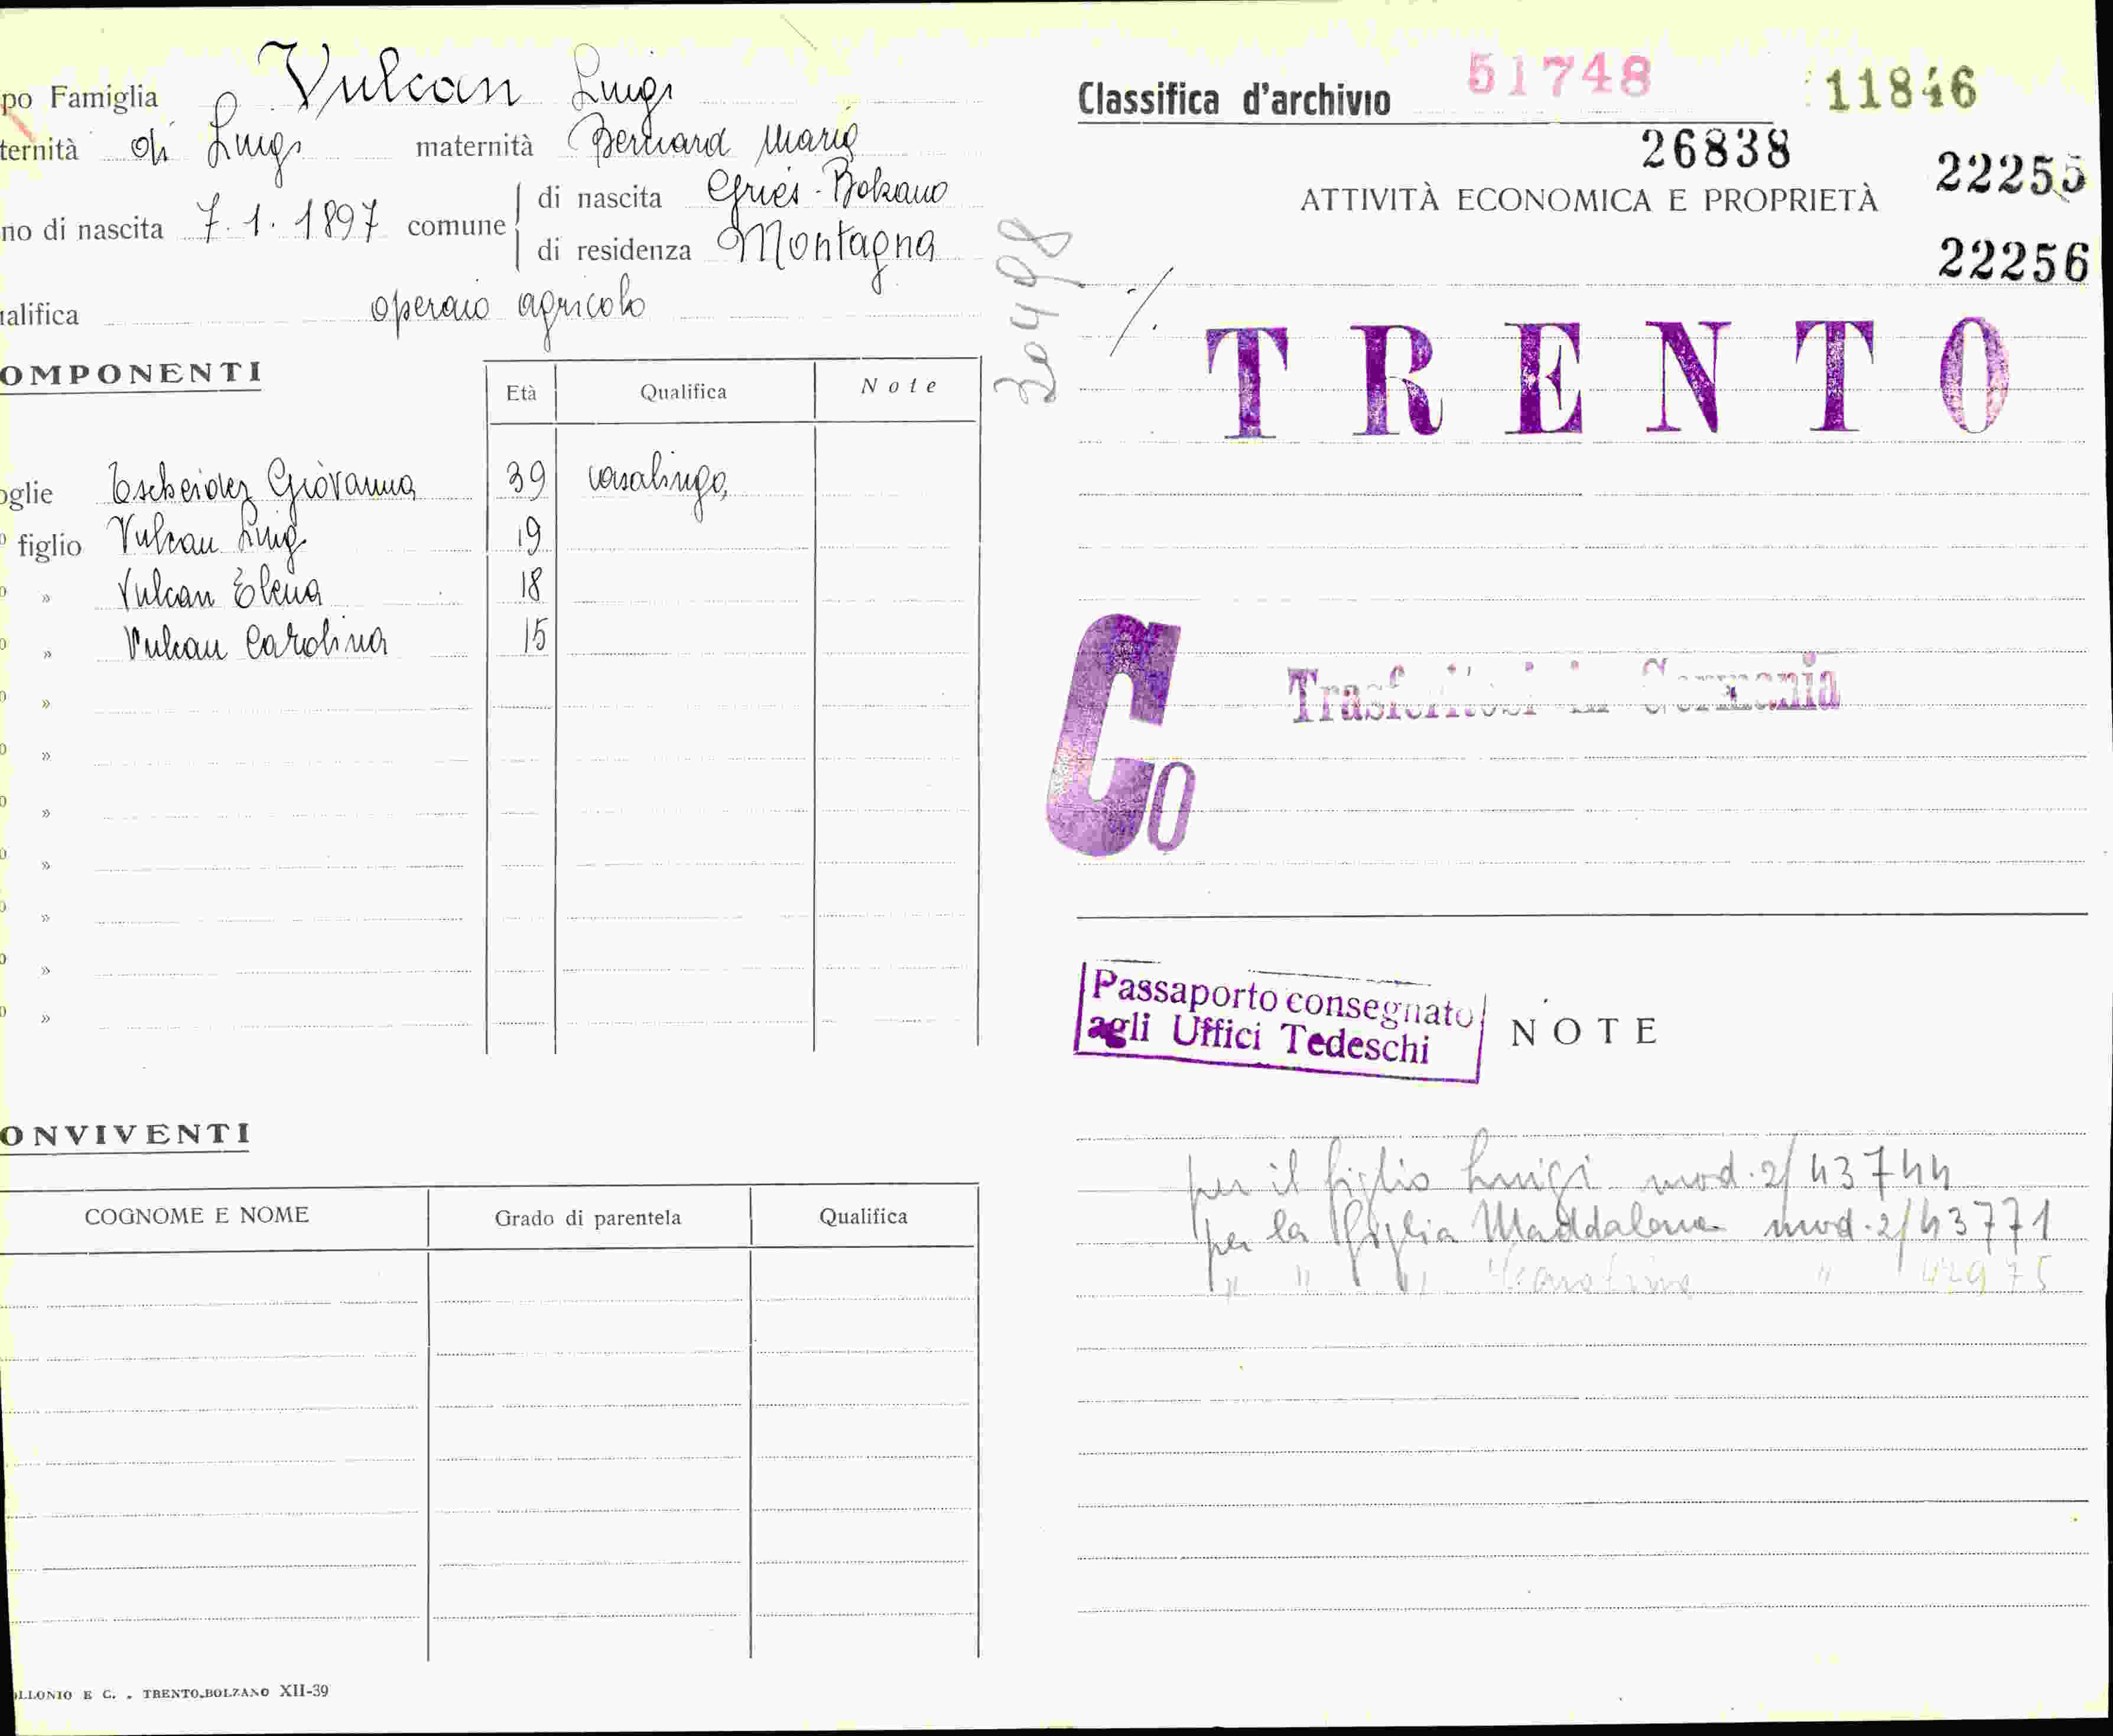 po Famiglia Vulcan Luigi
ternità di Luigi maternità Bernard Maria
no di nascita 7.1.1897 comune di nascita Gries-Bolzano
di residenza Montagna
alifica operaio agricolo
OMPONENTI
Età Qualifica Note
oglie Giovanna 39 casalinga
figlio Vulcan Luigi 19
» Vulcan Elena 18
» Vulcan Carolina 15
»
»
»
»
»
»
»
ONVIVENTI
COGNOME E NOME Grado di parentela Qualifica
OLLONIO E C. - TRENTO-BOLZANO XII-39
30498
Classifica d'archivio 51748 11846
26838
22255
ATTIVITÀ ECONOMICA E PROPRIETÀ
22256
%
TRENTO
Co
Trasferitosi in Germania
Passaporto consegnato
agli Uffici Tedeschi
NOTE
per il figlio Luigi mod. 2/43744
per la figlia Maddalena mod. 2/43771
" " " Carolina "